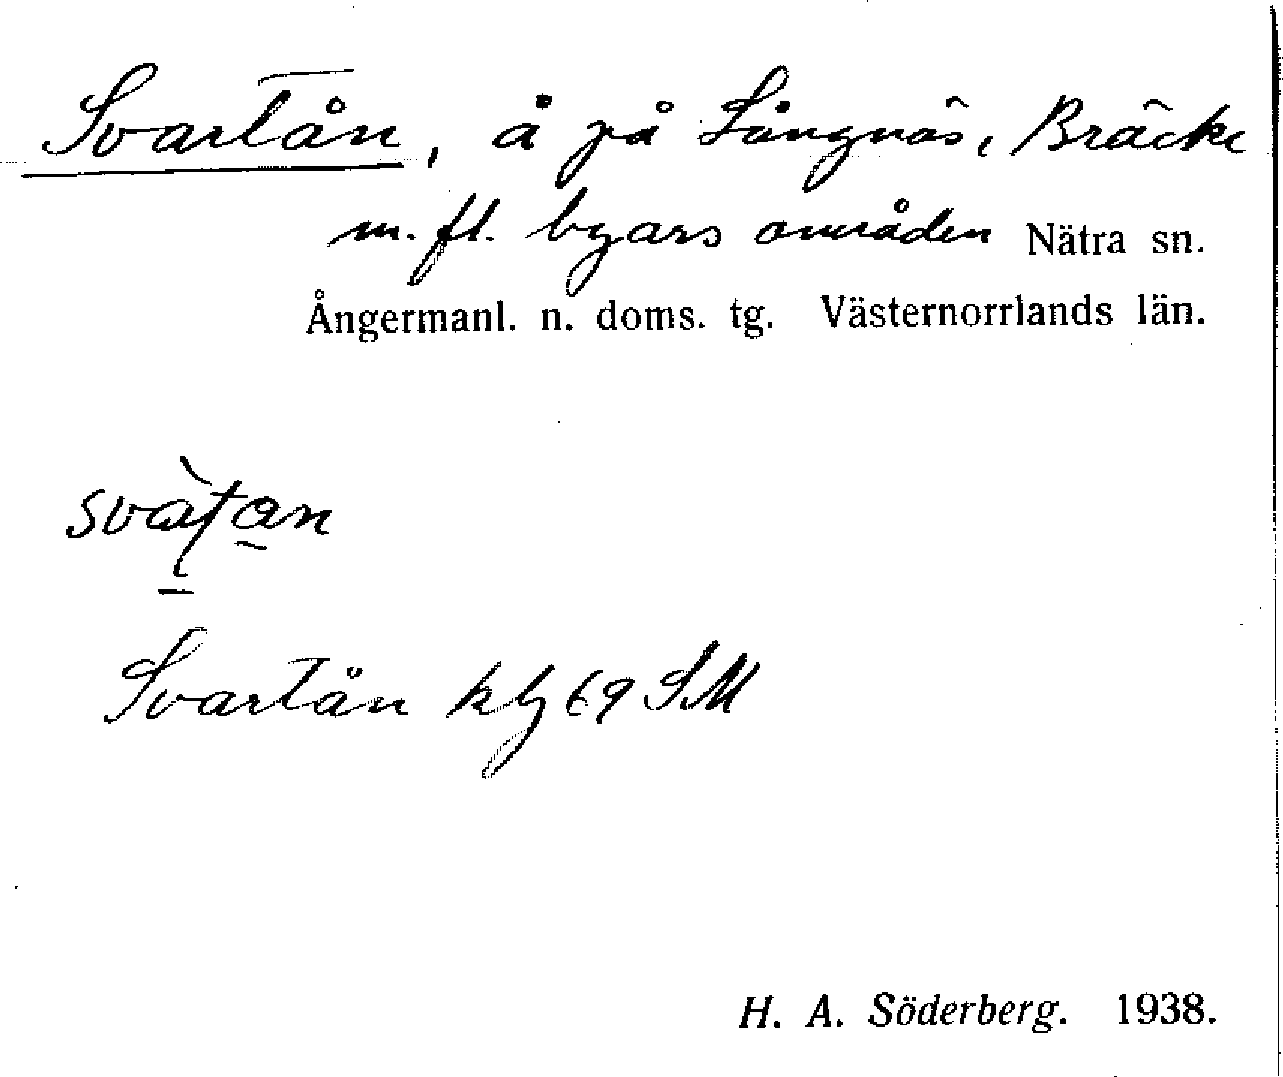 Svartån, å på Långnäs, Bräcke
m. fl. byars områden Nätra sn.
Ångermanl. n. doms. tg. Västernorrlands län.
svàʈan
Svartån kbl 69 SM
H. A. Söderberg. 1938.